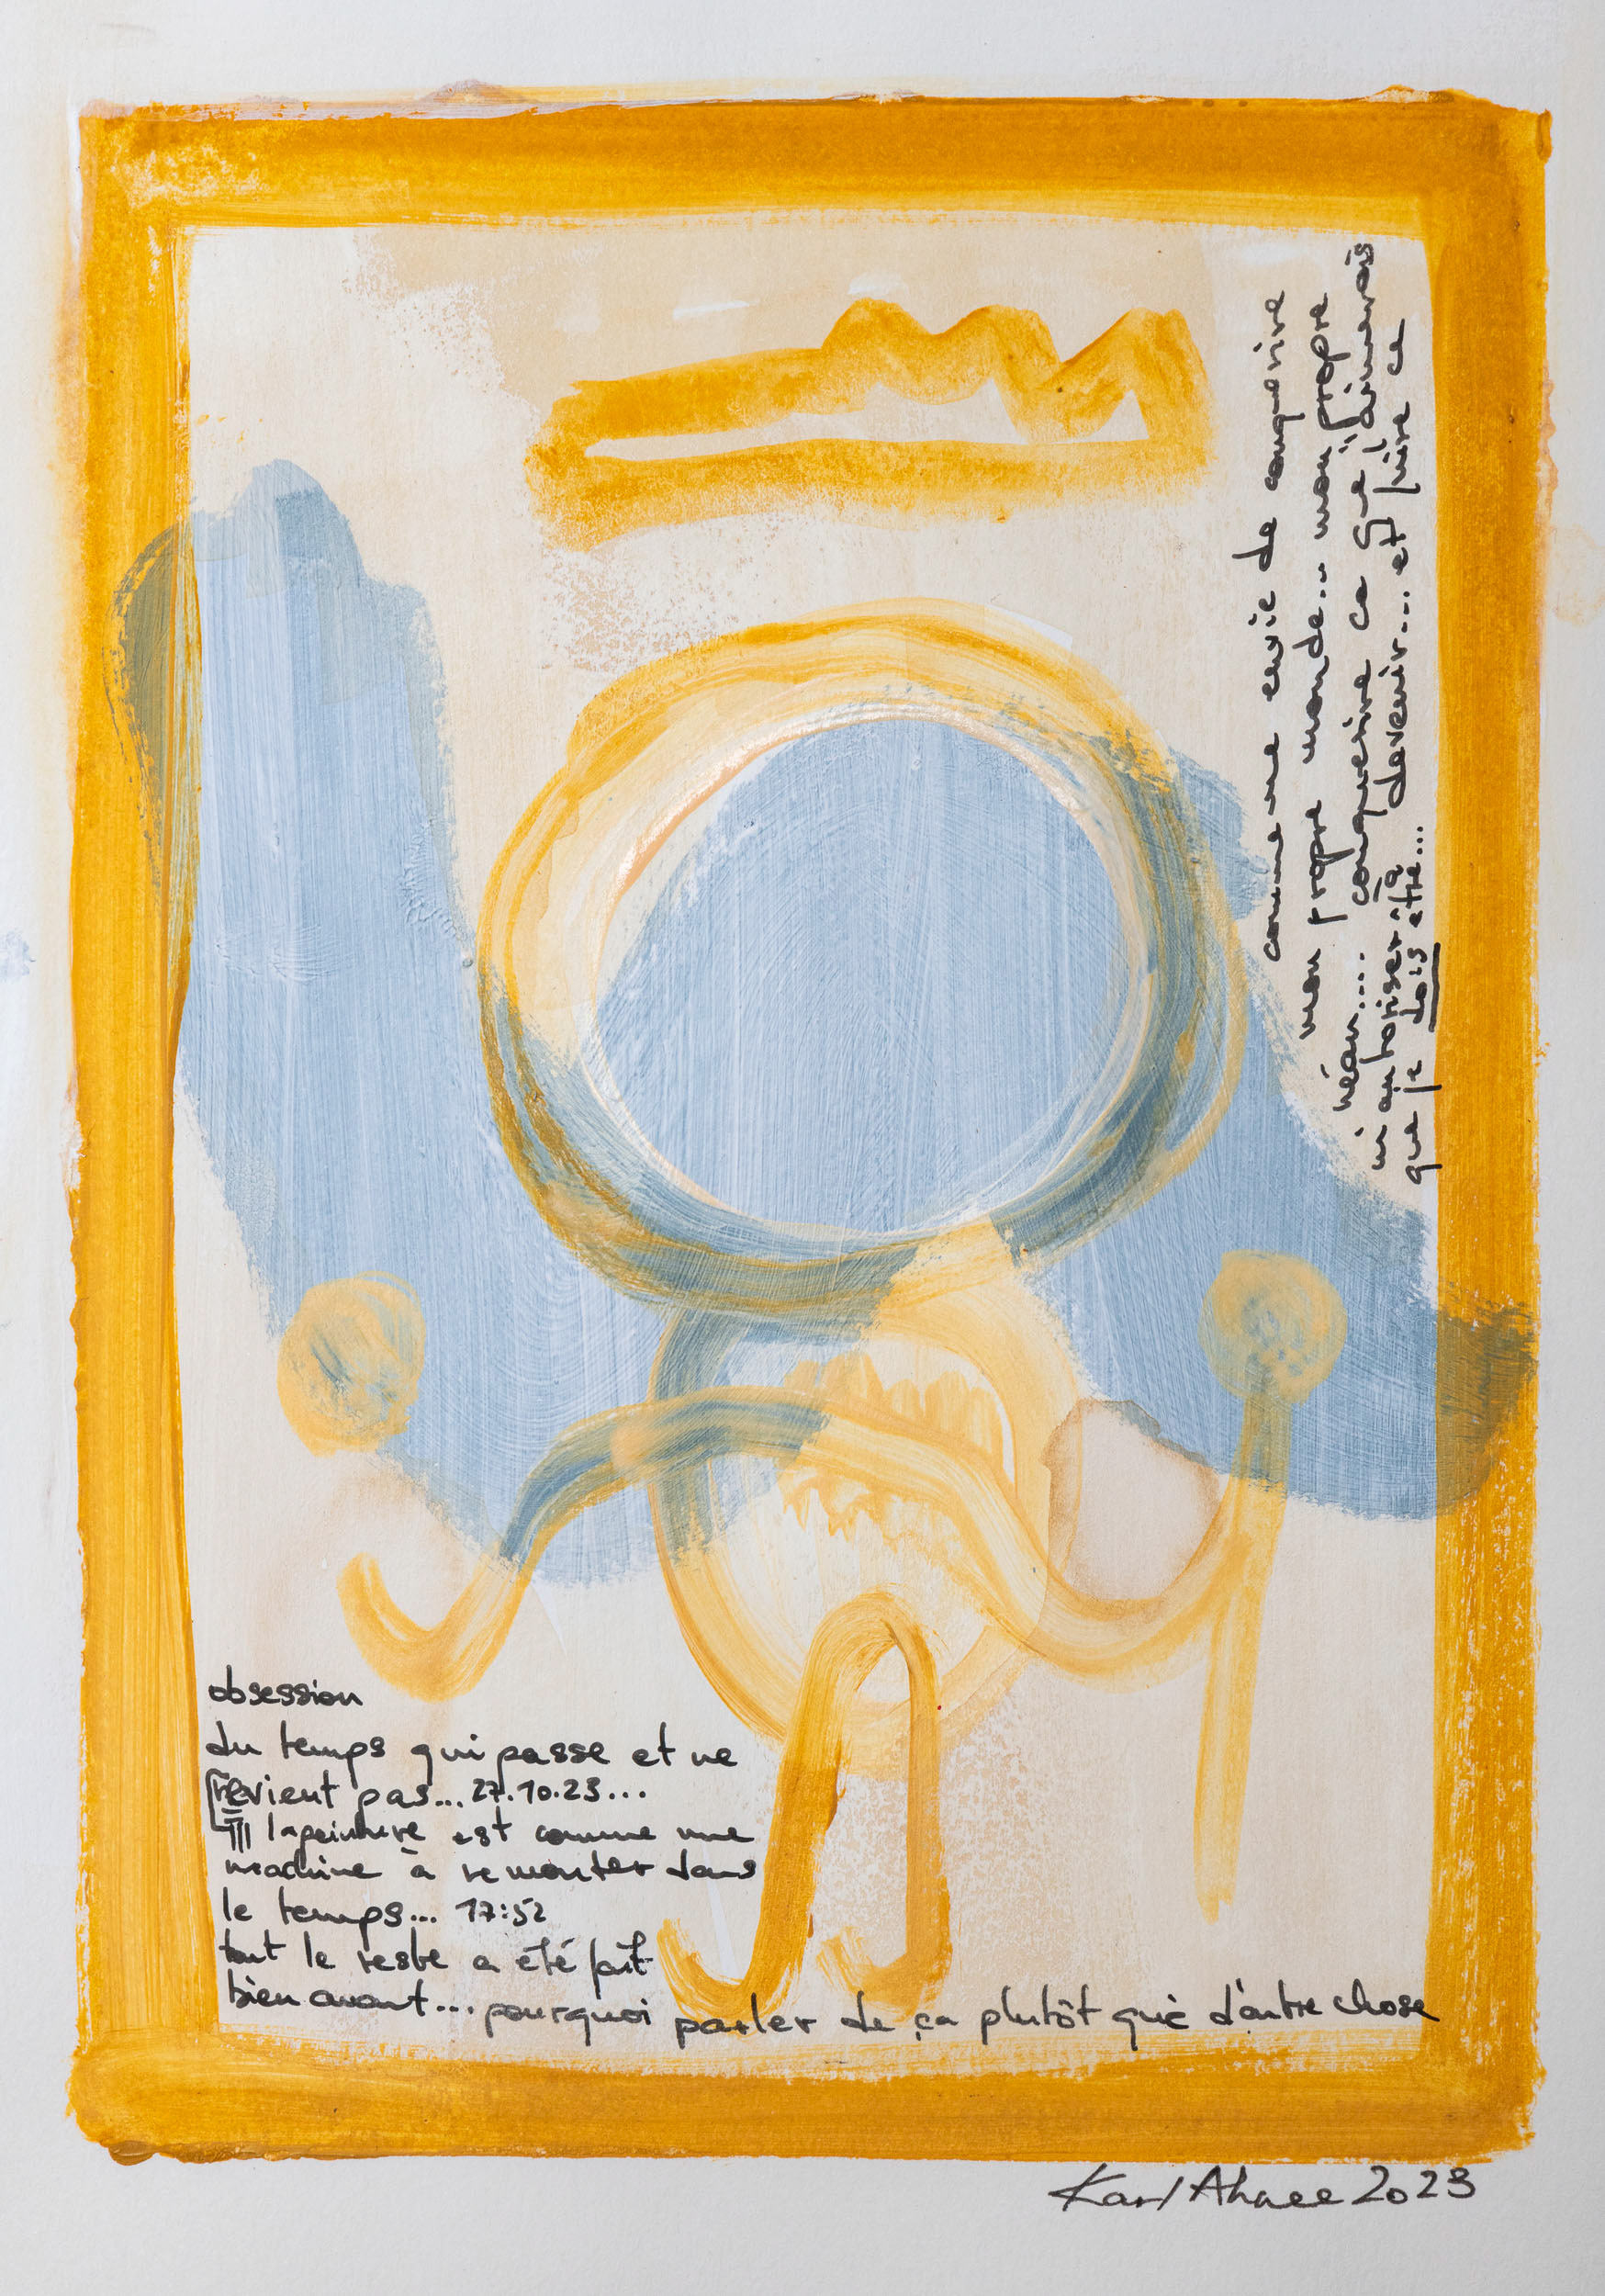 comme une envie de conquérire
mon propre monde... mon propre
néan.... conquérire ce que j'aimerais
m'autoriser à devenir... et fuire ce
que je dois etre...
obsession
du temps qui passe et ne
revient pas... 27.10.23...
la peinture est comme une
machine à remonter dans
le temps... 17:52
tout le reste a été fait
bien avant... pourquoi parler de ça plutôt que d'autre chose
Karl Ahnee 2023